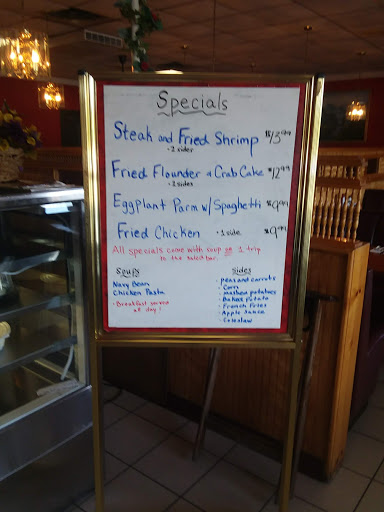 Specials
Steak and Fried Shrimp $13.99
- 2 sides
Fried Flounder & Crab Cake $12.99
- 2 sides
Eggplant Parm w/ Spaghetti $9.99
Fried Chicken - 1 side $9.99
All specials come with soup or 1 trip
to the salad bar
Soups
Navy Bean
Chicken Pasta
- Breakfast served
all day!
Sides
- peas and carrots
- Corn
- mashed potatoes
- Baked Potato
- French Fries
- Apple Sauce
- Coleslaw